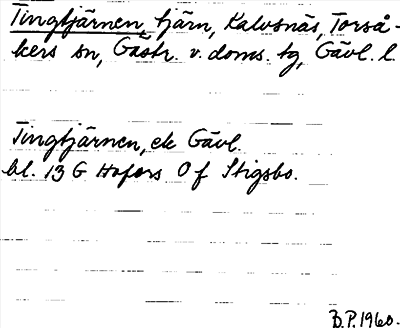 Tingtjärnen, tjärn, Kalvsnäs, Torså-
kers sn, Gästr. v. doms. tg, Gävl. l.
Tingtjärnen, ek Gävl.
bl. 13 G Hofors 0 f Stigsbo.
B.P. 1960.